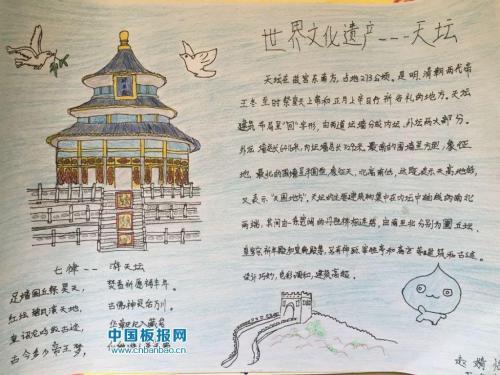 世界文化遗产---天坛
天坛在故宫东南方,占地273公顷。是明、清朝两代帝
王冬至时祭皇天上帝和正月上辛日行祈谷礼的地方。天坛
建筑布局呈"回"字形,由两道坛墙分成内坛、外坛两大部分。
外坛墙总长6416米,内坛墙总长
最北的围墙呈半圆型,象征天,北高南低,这既表示天高地低,
又表示"天圆地方",天坛的主要建筑物集中在内坛中轴线的南北
两端,其间由一条宽阔的丹陛桥相连结,由南至北分别为圜丘坛、
皇穹宇、祈年殿和皇乾殿等,另有神厨、宰牲亭和斋宫等建筑和古迹,
设计巧妙,色彩调和,建筑高超。
七律--游天坛
足墙圜丘
红坛
古今多少帝王梦,
中国板报网
www.cnbanbao.cn